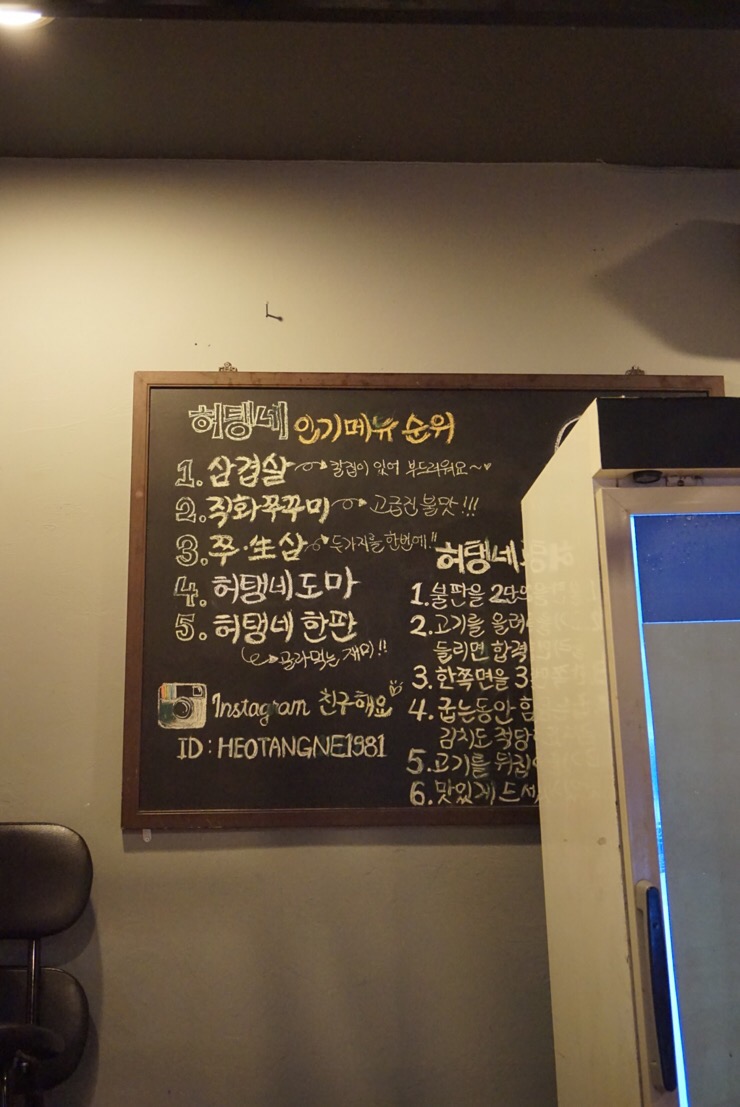 허탱네 인기메뉴 순위
1. 삼겹살 칼집이 있어 부드러워요~♥
2. 직화쭈꾸미 고급진 불맛!!!
3. 쭈·生삼 두가지를 한번에!!
4. 허탱네 도마
5. 허탱네 한판
골라먹는 재미!!
Instagram 친구해요
ID : HEOTANGNE1981
허탱네
1. 불판을 2단
2. 고기를 올려
들리면 합격
3. 한쪽면을 3
4. 굽는동안
김치도 적당
5. 고기를 뒤집
6. 맛있게 드세